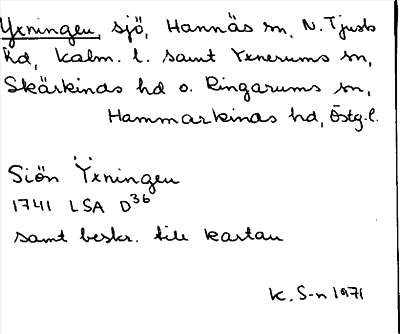 Yxningen, sjö, Hannäs sn, N. Tjusts
hd, Kalm. l. samt Yxnerums sn,
Skärkinds hd o. Ringarums sn,
Hammarkinds hd, Östg. l.
Siön Yxningen
1741 LSA D36
samt beskr. till kartan
K. S-n 1971